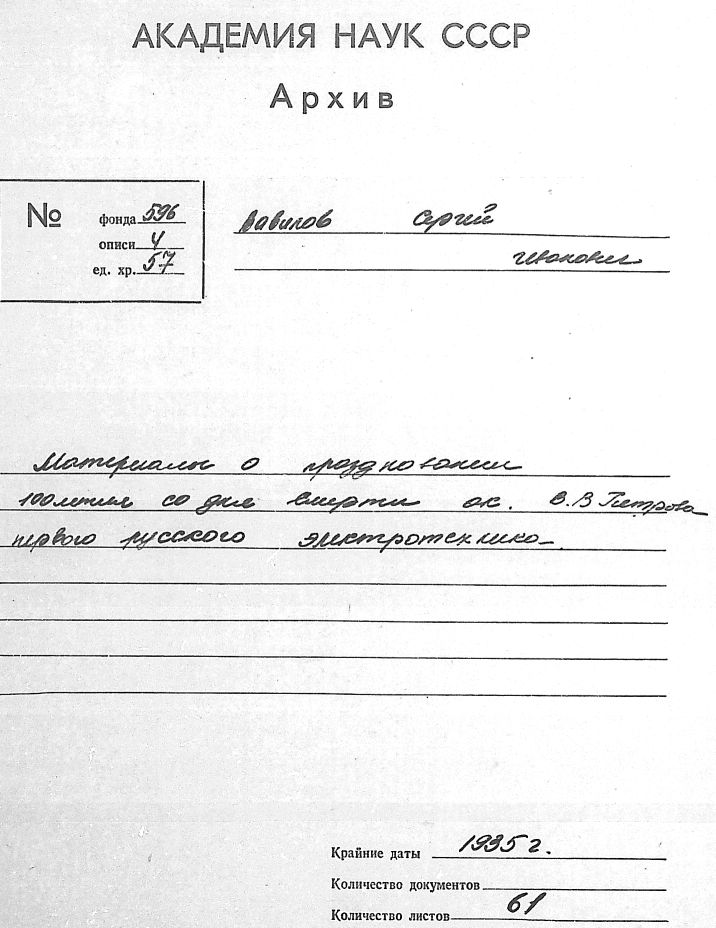 АКАДЕМИЯ НАУК СССР
Архив
№ фонда 596
описи 4
ед. хр. 57
Вавилов Сергей
Иванович
Материалы о праздновании
100летия со дня смерти ак. В.В Петрова
первого русского электротехника
Крайние даты 1935 г.
Количество документов
Количество листов 61